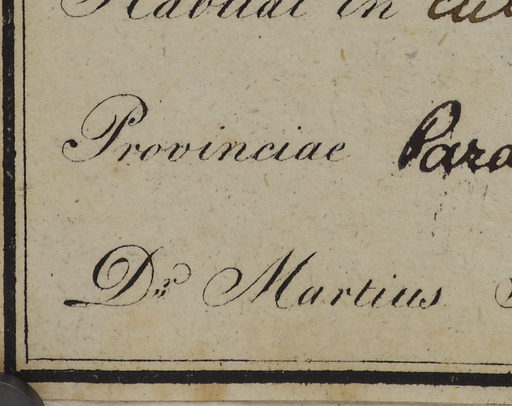 Habitat in
Provinciae Para
Dr. Martius